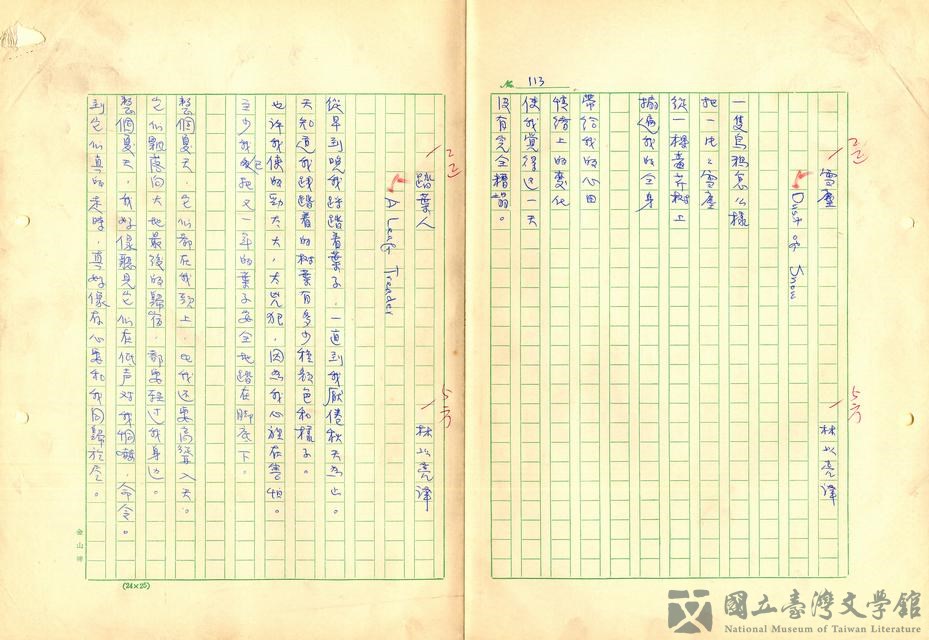 № 113
雪塵
Dust of Snow
林以亮譯
一隻烏鴉怎么樣
把一片片雪塵
從一棵毒芹樹上
搧遍我的全身
帶給我的心田
情緒上的变化
使我覺得這一天
沒有完全糟蹋。
踏葉人
A Leaf Treader
林以亮譯
從早到晚我踩踏着葉子，一直到我厭倦秋天為止。
天知道我踩踏着的樹葉有多少種顏色和樣子。
也許我使的勁太大，太兇犯，因為我心裡在害怕。
至少我已把又一年的葉子安全地踏在脚底下。
整個夏天，它们都在我頭上，比我还要高聳入天。
它们飄落向大地最後的歸宿，都要経过我身边。
整個夏天，我好像聽見它们在低声对我恫嚇，命令。
到它们真的走時，真好像存心要和我同歸於尽。
金山牌
(24×25)
國立臺灣文學館
National Museum of Taiwan Literature